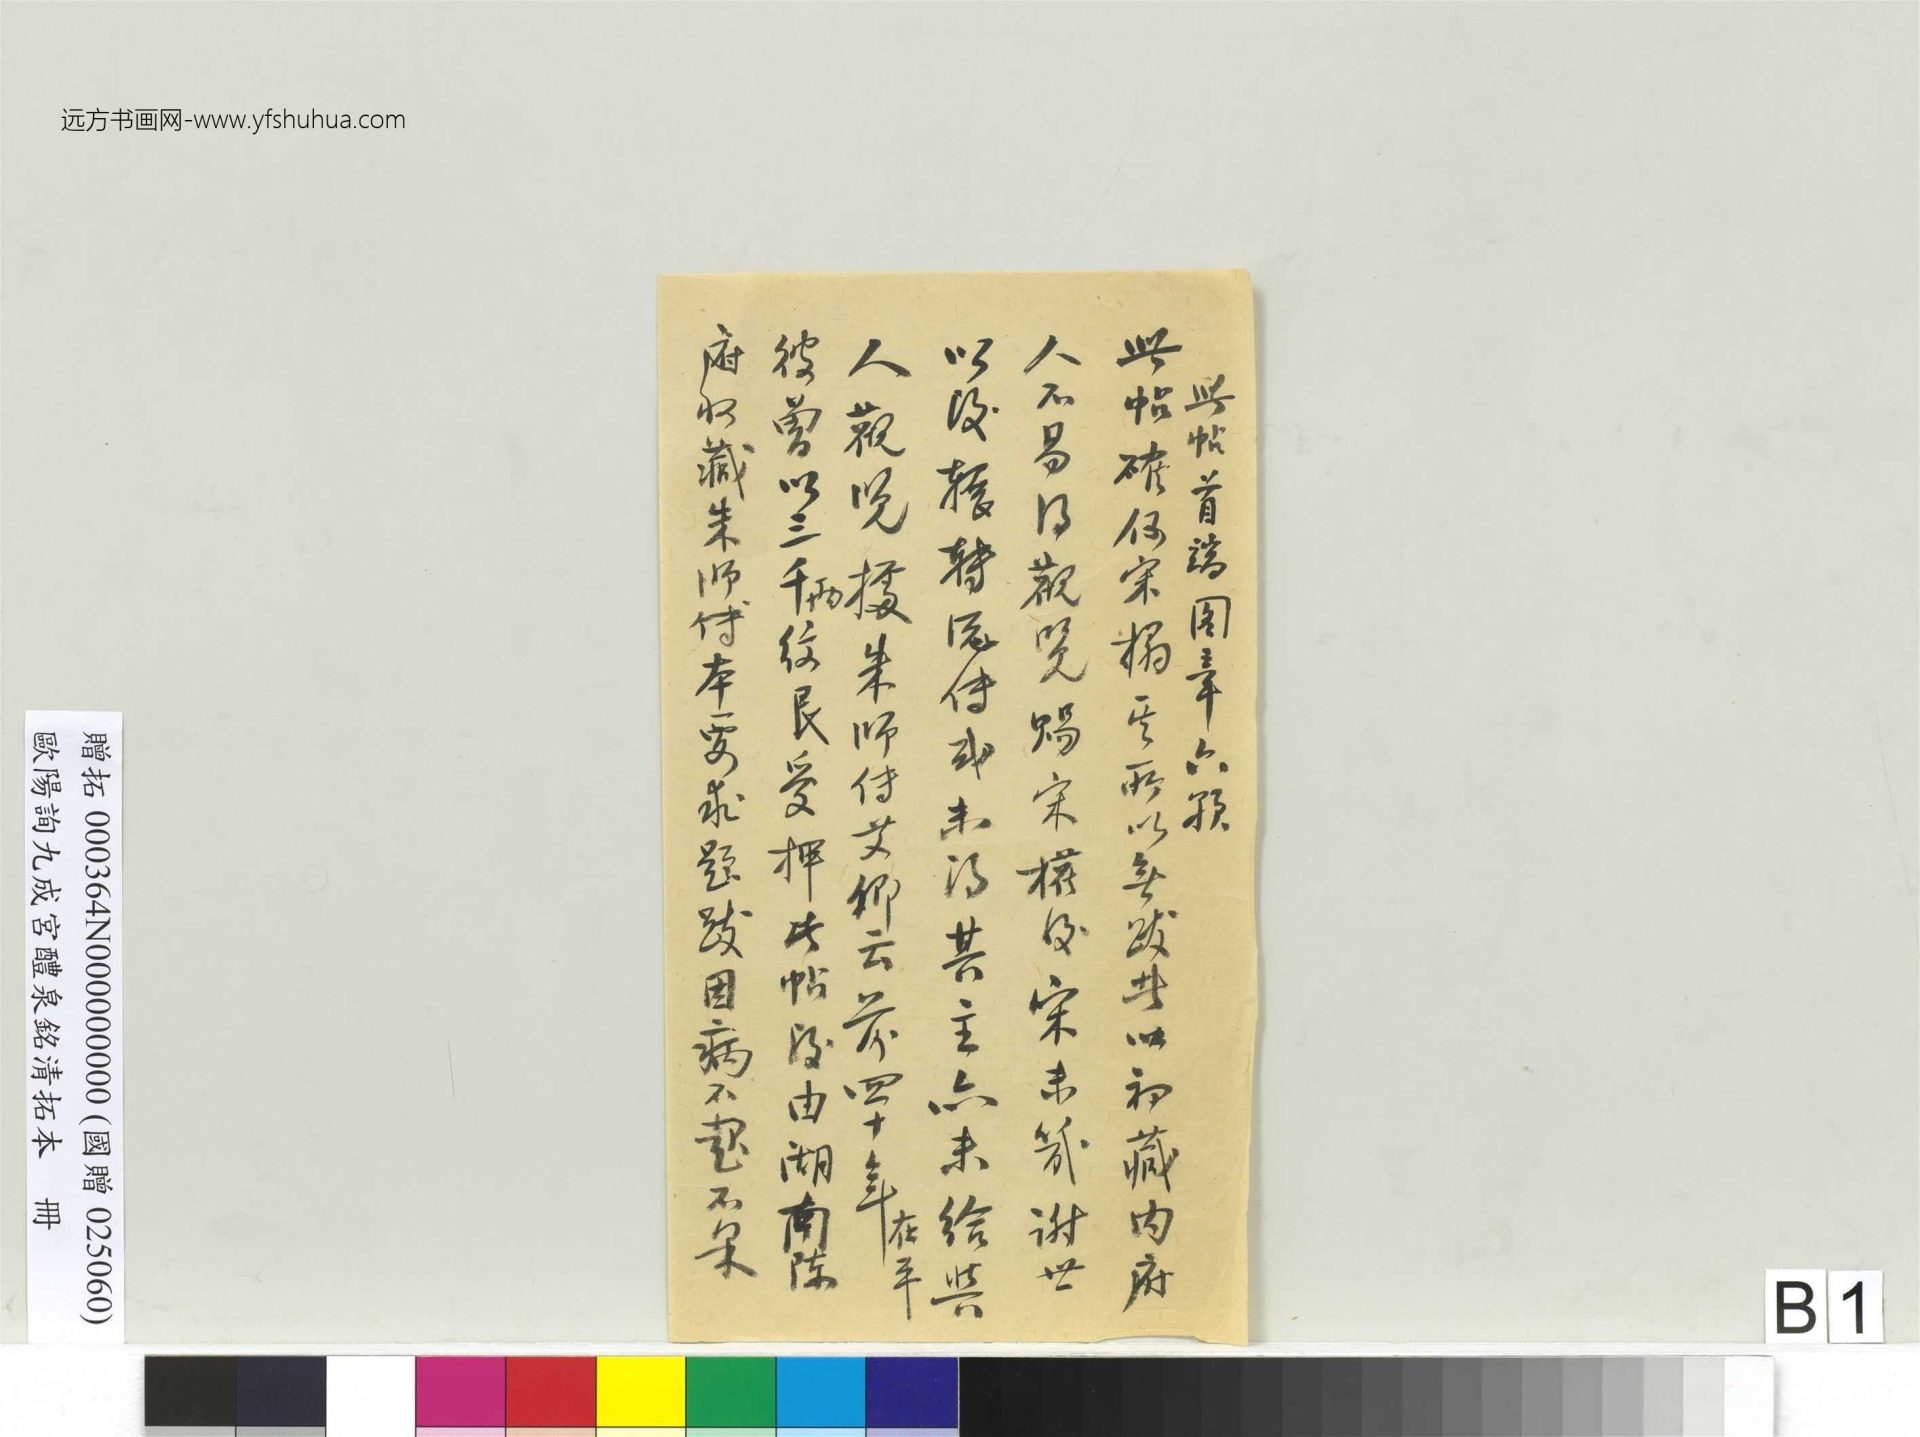 远方书画网-www.yfshuhua.com
此帖首端图章六颗
此帖確係宋榻其所以無跋者以初藏内府
人不易得觀覽賜宋權後宋未幾謝世
以後輾轉流傳或未得其主亦未給與
人觀覽據朱師傅艾卿云前四十年在平
彼曾以三千兩紋艮受押此帖後由湖南陳
府收藏朱師傅本要求題跋因病不起不果
贈拓 000364N000000000 (國贈 025060)
歐陽詢九成宮醴泉銘清拓本 冊
B 1